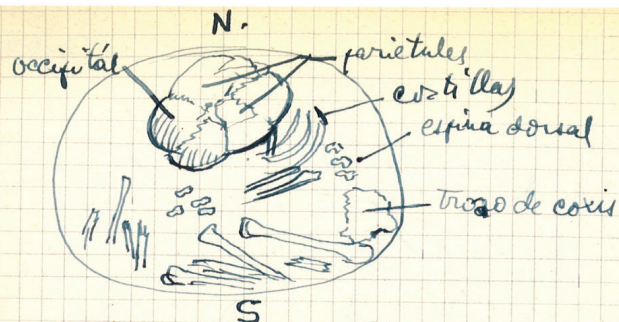 N.
occipitál
parietales
costillas
espina dorsal
Trozo de coxis
S